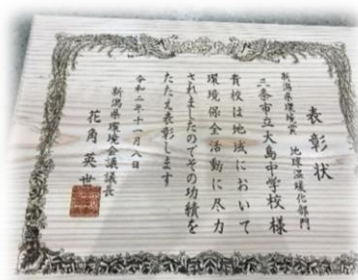 表彰状
新潟県環境賞 地球温暖化部門
三条市立大島中学校様
貴校は地域において
環境保全活動に尽力
されましたのでその功績を
たたえ表彰します
令和二年十一月八日
新潟県環境会議議長
花角英世